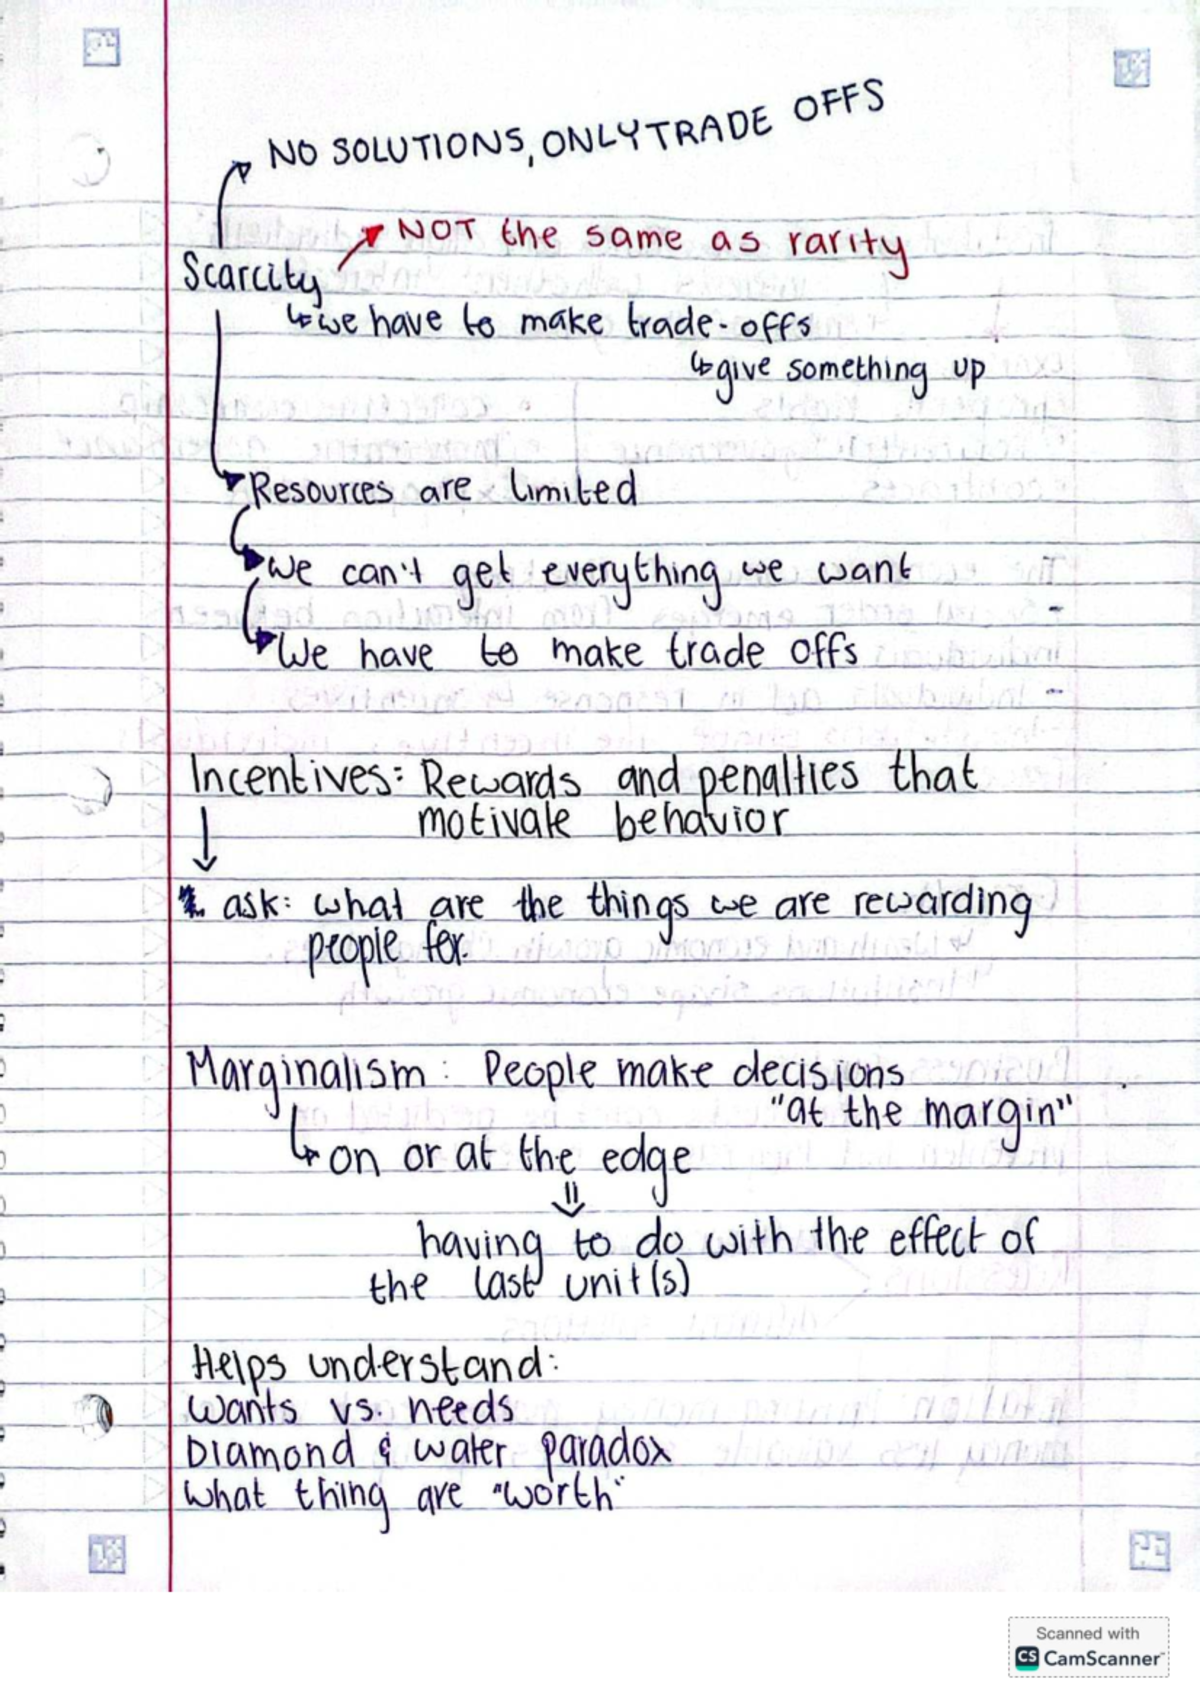 NO SOLUTIONS, ONLY TRADE OFFS
NOT the same as rarity
Scarcity
↳ we have to make trade-offs
↳ give something up
Resources are limited
We can't get everything we want
We have to make trade offs
Incentives: Rewards and penalties that
motivate behavior
ask: what are the things we are rewarding
people for.
Marginalism: People make decisions
"at the margin"
↳ on or at the edge
⇓
having to do with the effect of
the last unit(s)
Helps understand:
Wants vs. needs
Diamond & water paradox
What thing are "worth"
Scanned with
CS CamScanner